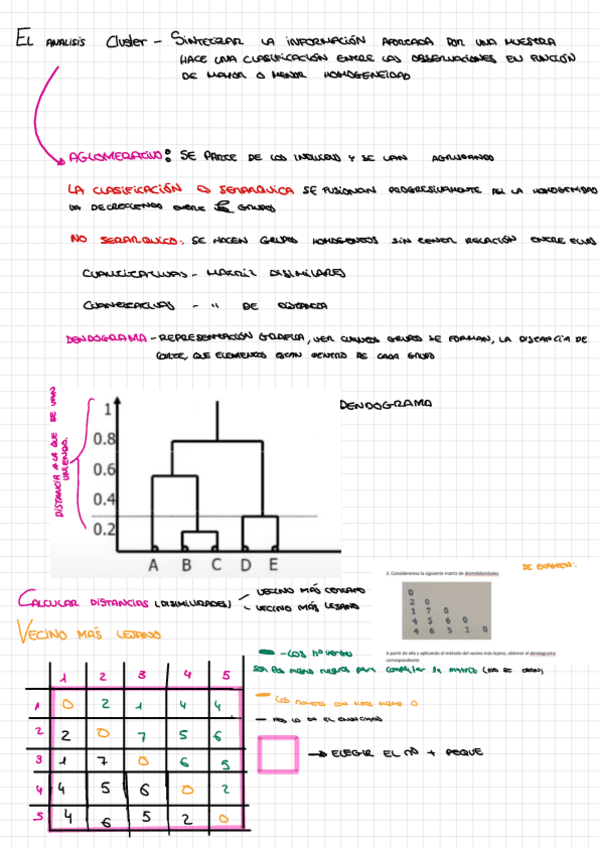 EL ANALISIS Cluster - SINTETIZAR LA INFORMACIÓN APORTADA POR UNA MUESTRA
HACE UNA CLASIFICACIÓN ENTRE LAS OBSERVACIONES EN FUNCIÓN
DE MAYOR O MENOR HOMOGENEIDAD
AGLOMERATIVO: SE PARTE DE LOS Y SE VAN AGRUPANDO
LA CLASIFICACIÓN O SERARQUICA SE FUSIONAN PROGRESIVAMENTE LA HOMOGENEIDAD
VA DECRECIENDO ENTRE GRUPOS
NO SERARQUICO: SE HACEN GRUPOS HOMOGENEOS SIN TENER RELACIÓN ENTRE ELLOS
CUALITATIVAS - MATRIZ DISIMILARES
CUANTITATIVAS - " DE DISTANCIA
DENDOGRAMA - REPRESENTACIÓN GRAFICA, VER CUANTOS GRUPOS SE FORMAN, LA DISTANCIA DE
CORTE, QUE ELEMENTOS DENTRO DE CADA GRUPO
DISTANCIA A LA QUE SE VAN
UNIENDO.
DENDOGRAMA
1
0.8
0.6
0.4
0.2
A B C D E
DE EXAMEN:
3. Consideramos la siguiente matriz de disimilaridades
0
2 0
1 7 0
4 5 6 0
4 6 5 2 0
A partir de ella y aplicando el método del vecino más lejano, obtener el dendograma
correspondiente
CALCULAR DISTANCIAS (DISIMILARIDADES)
VECINO MÁS CERCANO
VECINO MÁS LEJANO
VECINO MÁS LEJANO
- LOS nº verdes
son los mismos negros para completar la matriz
- Los numeros con ellos mismos 0
- NOS LO DA EL ENUNCIADO
→ ELEGIR EL Nº + PEQUE
1 2 3 4 5
1 0 2 1 4 4
2 2 0 7 5 6
3 1 7 0 6 5
4 4 5 6 0 2
5 4 6 5 2 0